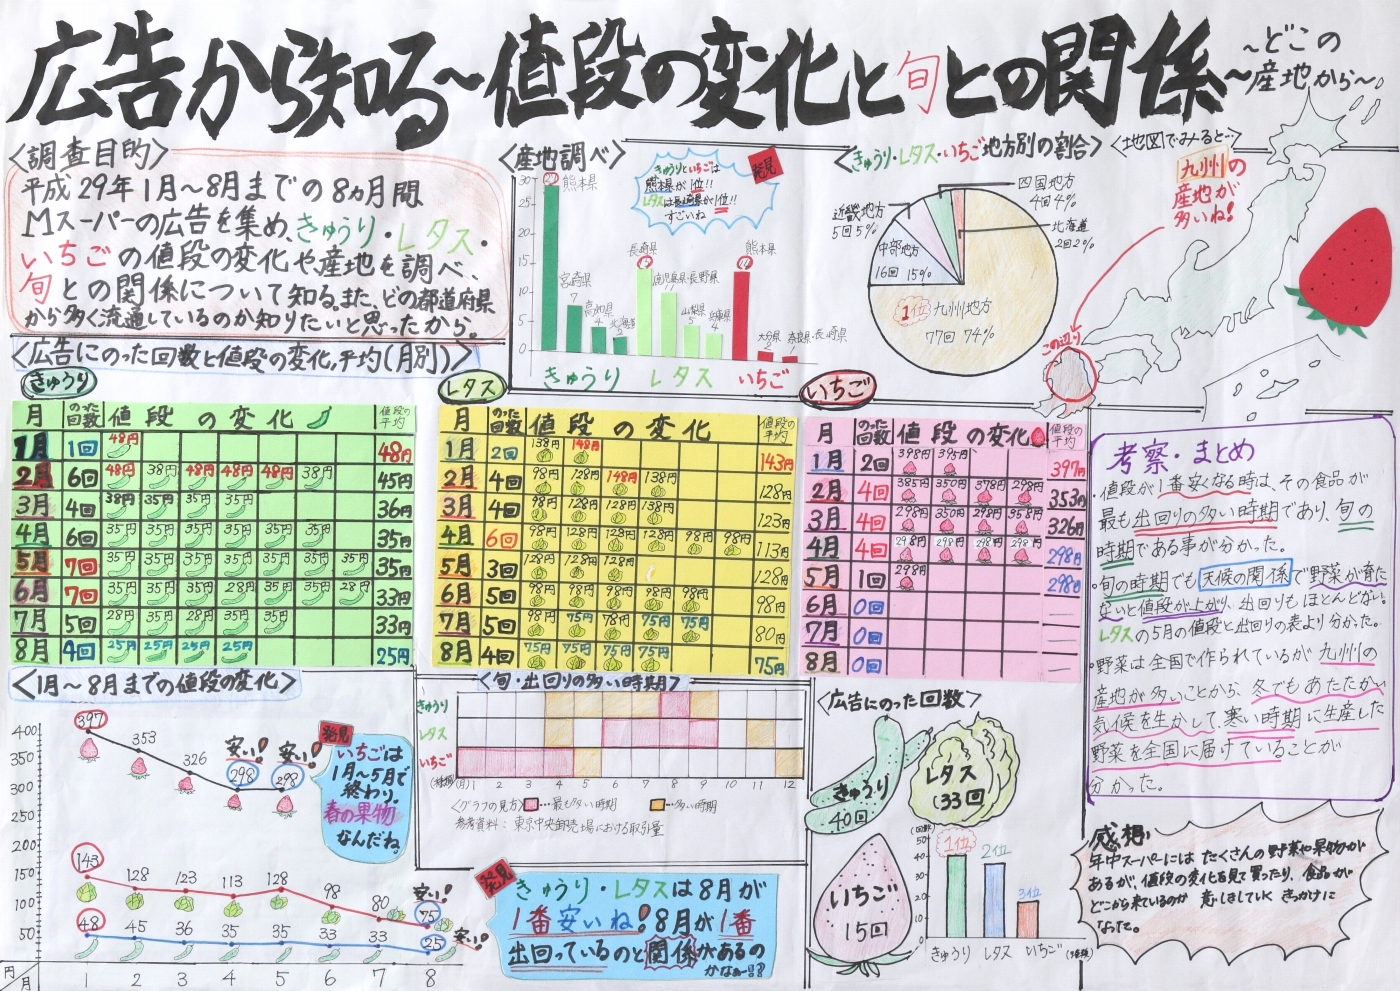 広告から知る～値段の変化と旬との関係
～どこの
～産地から～
〈調査目的〉
平成29年1月～8月までの8ヵ月間、
Mスーパーの広告を集め、きゅうり・レタス・
いちごの値段の変化や産地を調べ、
旬との関係について知る。また、どの都道府県
から多く流通しているのか知りたいと思ったから。
〈産地調べ〉
発見
きゅうりといちごは
熊本県が1位!!
レタスは長崎県が1位!!
すごいね
30
25
20
15
10
5
0
熊本県
宮崎県
7
高知県
4
北海道
長崎県
鹿児島県・長野県
山梨県
5
兵庫県
4
熊本県
大分県
2
奈良県・長崎県
1
きゅうり レタス いちご
〈きゅうり・レタス・いちご地方別の割合〉
四国地方
4回4%
北海道
2回2%
近畿地方
5回5%
中部地方
16回 15%
1位 九州地方
77回 74%
〈地図でみると…〉
九州の
産地が
多いね!
この辺り
〈広告にのった回数と値段の変化,平均(月別)〉
きゅうり
月 のった回数 値段の変化 値段の平均
1月 1回 48円 48円
2月 6回 48円 38円 48円 48円 48円 38円 45円
3月 4回 38円 35円 35円 35円 36円
4月 6回 35円 35円 35円 35円 35円 35円 35円
5月 7回 35円 35円 35円 35円 35円 35円 35円 35円
6月 7回 35円 35円 35円 28円 35円 35円 28円 33円
7月 5回 28円 35円 28円 35円 35円 33円
8月 4回 25円 25円 25円 25円 25円
レタス
月 のった回数 値段の変化 値段の平均
1月 2回 138円 148円 143円
2月 4回 98円 128円 148円 138円 128円
3月 4回 98円 128円 128円 138円 123円
4月 6回 98円 128円 128円 128円 98円 98円 113円
5月 3回 128円 128円 128円 128円
6月 5回 98円 98円 98円 98円 98円 98円
7月 5回 98円 75円 78円 75円 75円 80円
8月 4回 75円 75円 75円 75円 75円
いちご
月 のった回数 値段の変化 値段の平均
1月 2回 398円 395円 397円
2月 4回 385円 350円 378円 298円 353円
3月 4回 298円 350円 298円 358円 326円
4月 4回 298円 298円 298円 298円 298円
5月 1回 298円 298円
6月 0回 —
7月 0回 —
8月 0回 —
考察・まとめ
・値段が1番安くなる時は、その食品が
最も出回りの多い時期であり、旬の
時期である事が分かった。
・旬の時期でも天候の関係で野菜が育た
ないと値段が上がり、出回りもほとんどない。
レタスの5月の値段と出回りの表より分かった。
・野菜は全国で作られているが九州の
産地が多いことから、冬でもあたたかい
気候を生かして、寒い時期に生産した
野菜を全国に届けていることが
分かった。
〈1月～8月までの値段の変化〉
400
350
300
250
200
150
100
50
円
月
397 353 326 298 298
安い! 安い!
143 128 123 113 128 98 80 75
安い!
48 45 36 35 35 33 33 25
安い!
1 2 3 4 5 6 7 8
発見
いちごは
1月～5月で
終わり。
春の果物
なんだね。
〈旬・出回りの多い時期〉
きゅうり
レタス
いちご
(月) 1 2 3 4 5 6 7 8 9 10 11 12
〈グラフの見方〉 …最も多い時期 …多い時期
参考資料: 東京中央卸売市場における取引量
発見
きゅうり・レタスは8月が
1番安いね!8月が1番
出回っているのと関係があるの
かなぁ…!?
〈広告にのった回数〉
きゅうり
40回
レタス
(33回)
いちご
15回
(回数)
50
40
30
20
10
0
1位
2位
3位
きゅうり レタス いちご (種類)
感想
年中スーパーにはたくさんの野菜や果物が
あるが、値段の変化を見て買ったり、食品が
どこから来ているのか 意しはしていく きっかけに
なった。